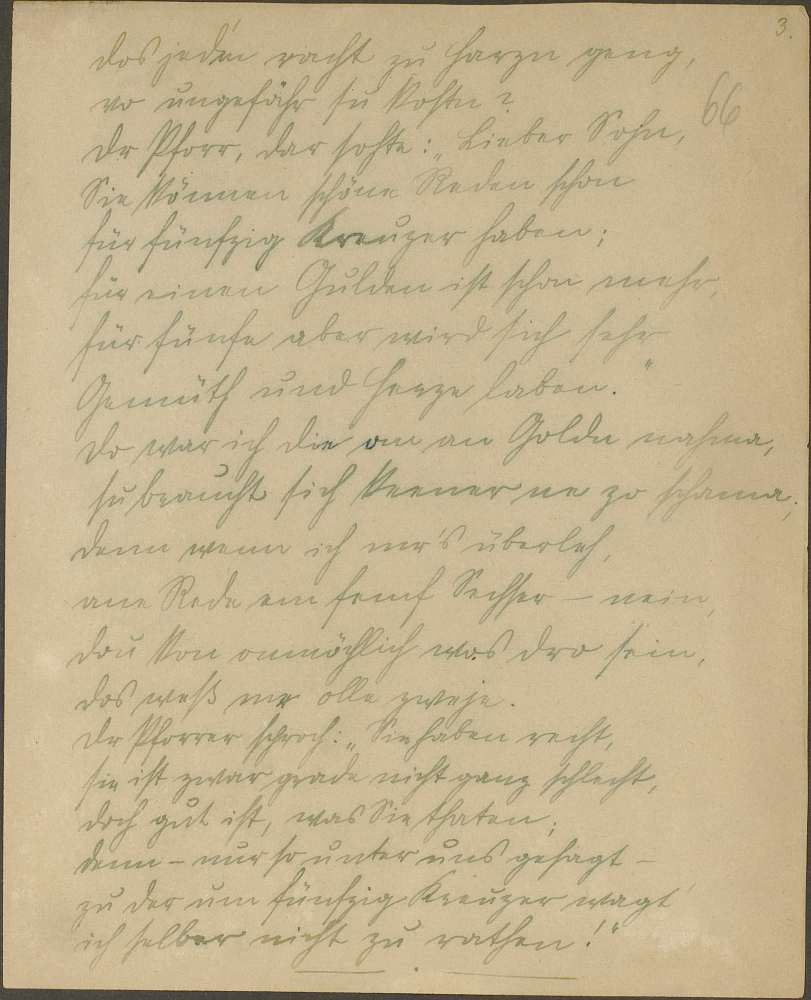 3.
66
das jed'n racht zu Harzn geng,
wo ungefähr su kostn?
Dr Pforr, dar sohte: „Lieber Sohn,
Sie können schöne Reden schon
für fünfzig Kreuzer haben;
für einen Gulden ist schon mehr,
für fünfe aber wird sich sehr
Gemüth und Herze laben."
Do war ich die om an Goldn nahma,
su braucht sich keener ne zo schama;
denn wenn ich mr's überleh,
ane Rede em femf Sechser – nein,
dou kon onmöglich wos dro sein,
das weß mr olle zweje.
Dr Pforrer sproch: „Sie haben recht,
sie ist zwar grade nicht ganz schlecht,
doch gut ist, was Sie thaten;
denn – nur so unter uns gesagt –
zu der um fünfzig Kreuzer wagt
ich selber nicht zu rathen!"